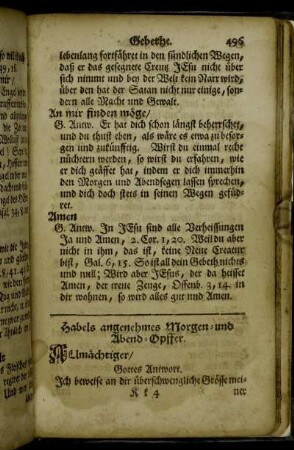 Gebethe. 496
lebenlang fortfähret in den sündlichen Wegen,
daß er das gesegnete Creutz JEsu nicht über
sich nimmt und bey der Welt kein Narr wird,
über den hat der Satan nicht nur einige, son-
dern alle Macht und Gewalt.
An mir finden möge/
G. Antw. Er hat dich schon längst beherrschet,
und du thust eben, als wäre es etwa zu besor-
gen und zukünfftig. Wirst du einmal recht
nüchtern werden, so wirst du erfahren, wie
er dich geäffet hat, indem er dich immerhin
den Morgen und Abendsegen lassen sprechen,
und dich doch stets in seinen Wegen gefüh-
ret.
Amen
G. Antw. In JEsu sind alle Verheissungen
Ja und Amen, 2. Cor. 1, 20. Weil du aber
nicht in ihm, das ist, keine Neue Creatur
bist, Gal. 6, 15. So ist all dein Gebeth nichts
und null; Wird aber JEsus, der da heisset
Amen, der treue Zeuge, Offenb. 3, 14. in
dir wohnen, so wird alles gut und Amen.
Habels angenehmes Morgen- und
Abend-Opffer.
Allmächtiger/
Gottes Antwort.
Ich beweise an dir überschwengliche Grösse mei-
K k 4 ner